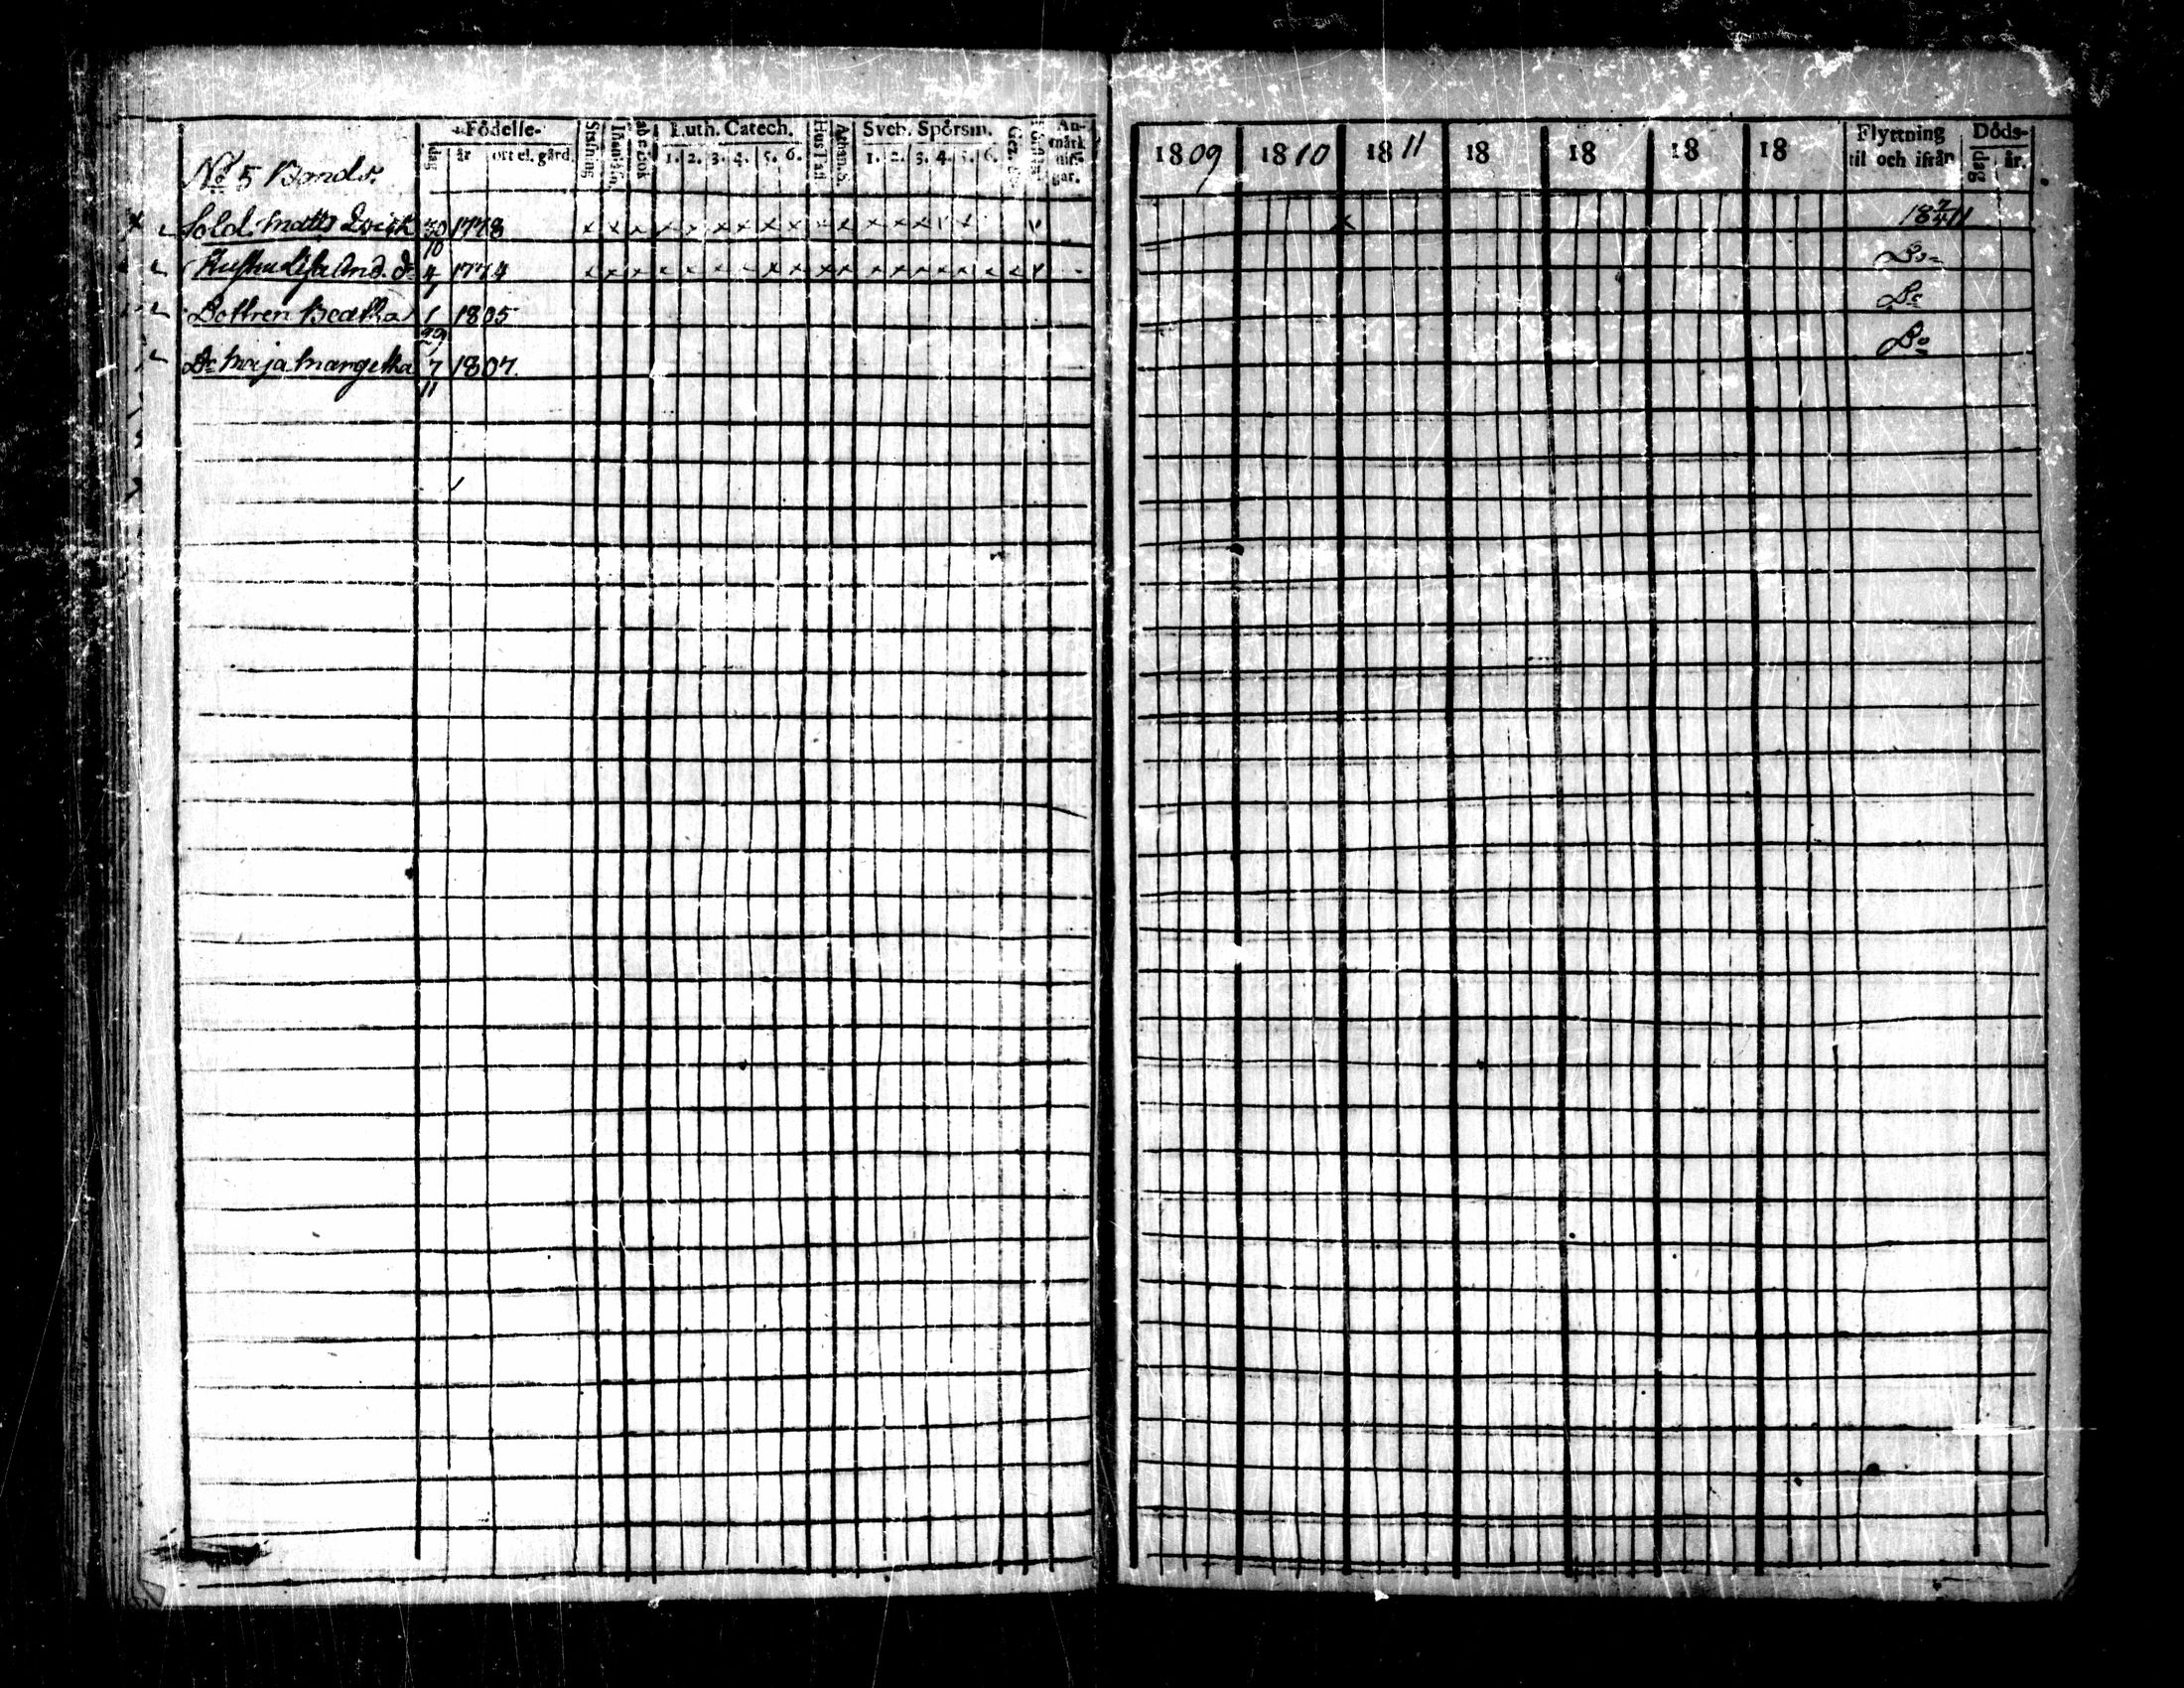 Födelse- Luth. Catech. Sveb. Spörsm.
dag år ort el. gård. Stafning abc bok 1. 2. 3. 4. 5. 6. Hus Tafl. Athan. S. 1. 2. 3. 4. 5. 6. An-märk nin-gar.
1809 1810 1811 18 18 18 18 Flyttning til och ifrån Döds- dag år.
No 5 Bonds.
Sold. Matts 30/10 1778 x x x x x x x x x x x x x x x x x 18 2/4 11
Hustru Lisa And. d. 4/1 1774 Do
Dottren Beatha 1/29 1805 Do
Do Maja Margetha 7/11 1807. Do